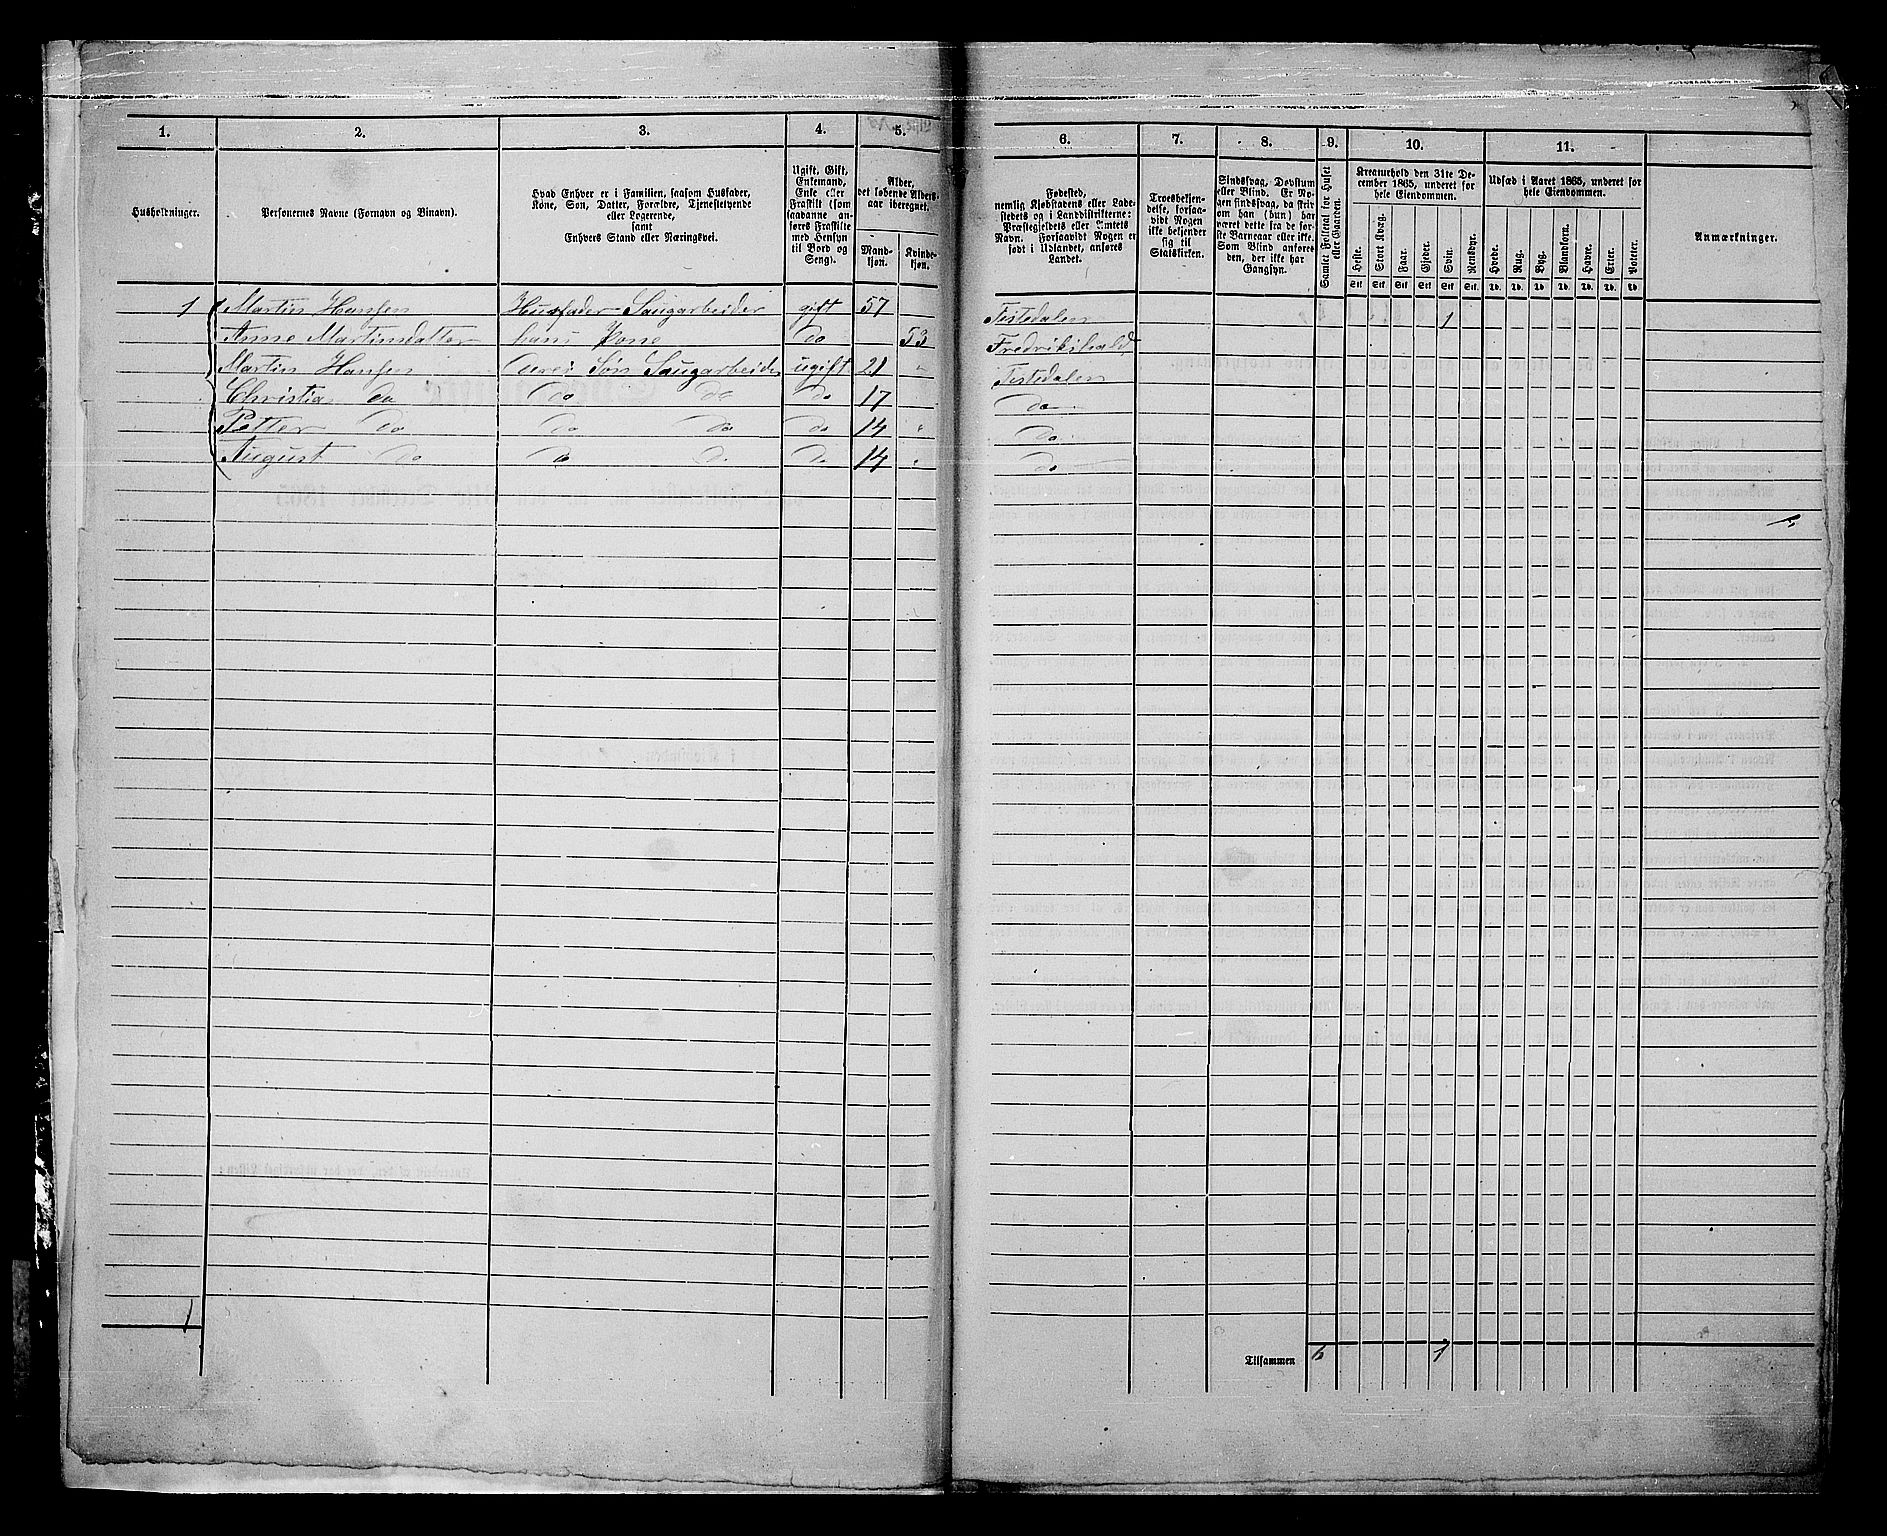 1. 2. 3. 4. 5. 6. 7. 8. 9. 10. 11.
Husholdninger.
Personernes Navne (Fornavn og Binavn).
Hvad Enhver er i Familien, saasom Husfader,
Kone, Søn, Datter, Forældre, Tjenestetyende
eller Logerende,
samt
Enhvers Stand eller Næringsvei.
Ugift, Gift,
Enkemand,
Enke eller
Fraskilt (som
saadanne an-
føres Fraskilte
med Hensyn
til Bord og
Seng).
Alder,
det løbende Alders-
aar iberegnet.
Mand-
kjøn.
Kvinde-
kjøn.
Fødested,
nemlig Kjøbstadens eller Lade-
stedets og i Landdistrikterne:
Præstegjeldets eller Amtets
Navn. Forsaavidt Nogen er
født i Udlandet, anføres
Landet.
Troesbekjen-
delse, forsaa-
vidt Nogen
ikke bekjender
sig til
Statskirken.
Sindssvag, Døvstum
eller Blind. Er No-
gen sindssvag, da skriv
om han (hun) har
været dette fra de før-
ste Barneaar eller ikke.
Som Blind anføres
den, der ikke har
Gangsyn.
Samlet Folketal for Huset
eller Gaarden.
Kreaturhold den 31te De-
cember 1865, underet for
hele Eiendommen.
Heste. Stort Kvæg. Faar. Gjeder. Svin. Rensdyr.
Stk Stk. Stk. Stk Stk Stk.
Udsæd i Aaret 1865, underet for
hele Eiendommen.
Hvede. Rug. Byg. Blandkorn. Havre. Erter. Poteter.
Td. Td. Td Td. Td. Td. Td
Anmærkninger.
1 Martin Hansen Husfader Saugarbeider gift 57 Tistedalen 1
Anne Martinsdatter hans Kone do 53 Fredrikshald
Martin Hansen deres Søn Saugarbeider ugift 21 " Tistedalen
Christia do do do do 17 do
Petter do do do do 14 " do
August do do d. do 14 " do
1
Tilsammen 6 1